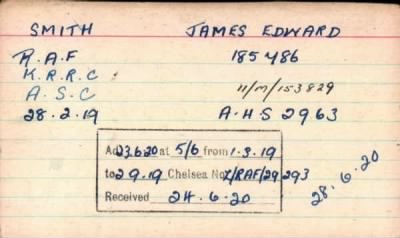 SMITH JAMES EDWARD
R.A.F 185486
K.R.R.C
A.S.C 11/M/153829
28.2.19 A.H.S 2963
Ad 23.6.20 at 5/6 from 1.3.19
to 2.9.19 Chelsea No. /RAF/29293
Received 24.6.20
28.6.20